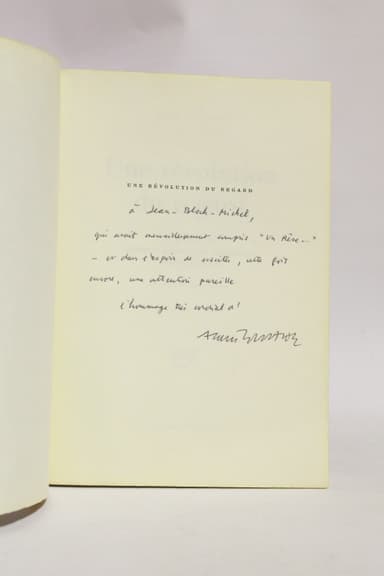 UNE RÉVOLUTION DU REGARD
à Jean-Bloch-Michel,
qui avait merveilleusement compris "Un Rêve..."
– et dans l'espoir de susciter, cette fois
encore, une attention pareille
l'hommage très cordial d'
Alain